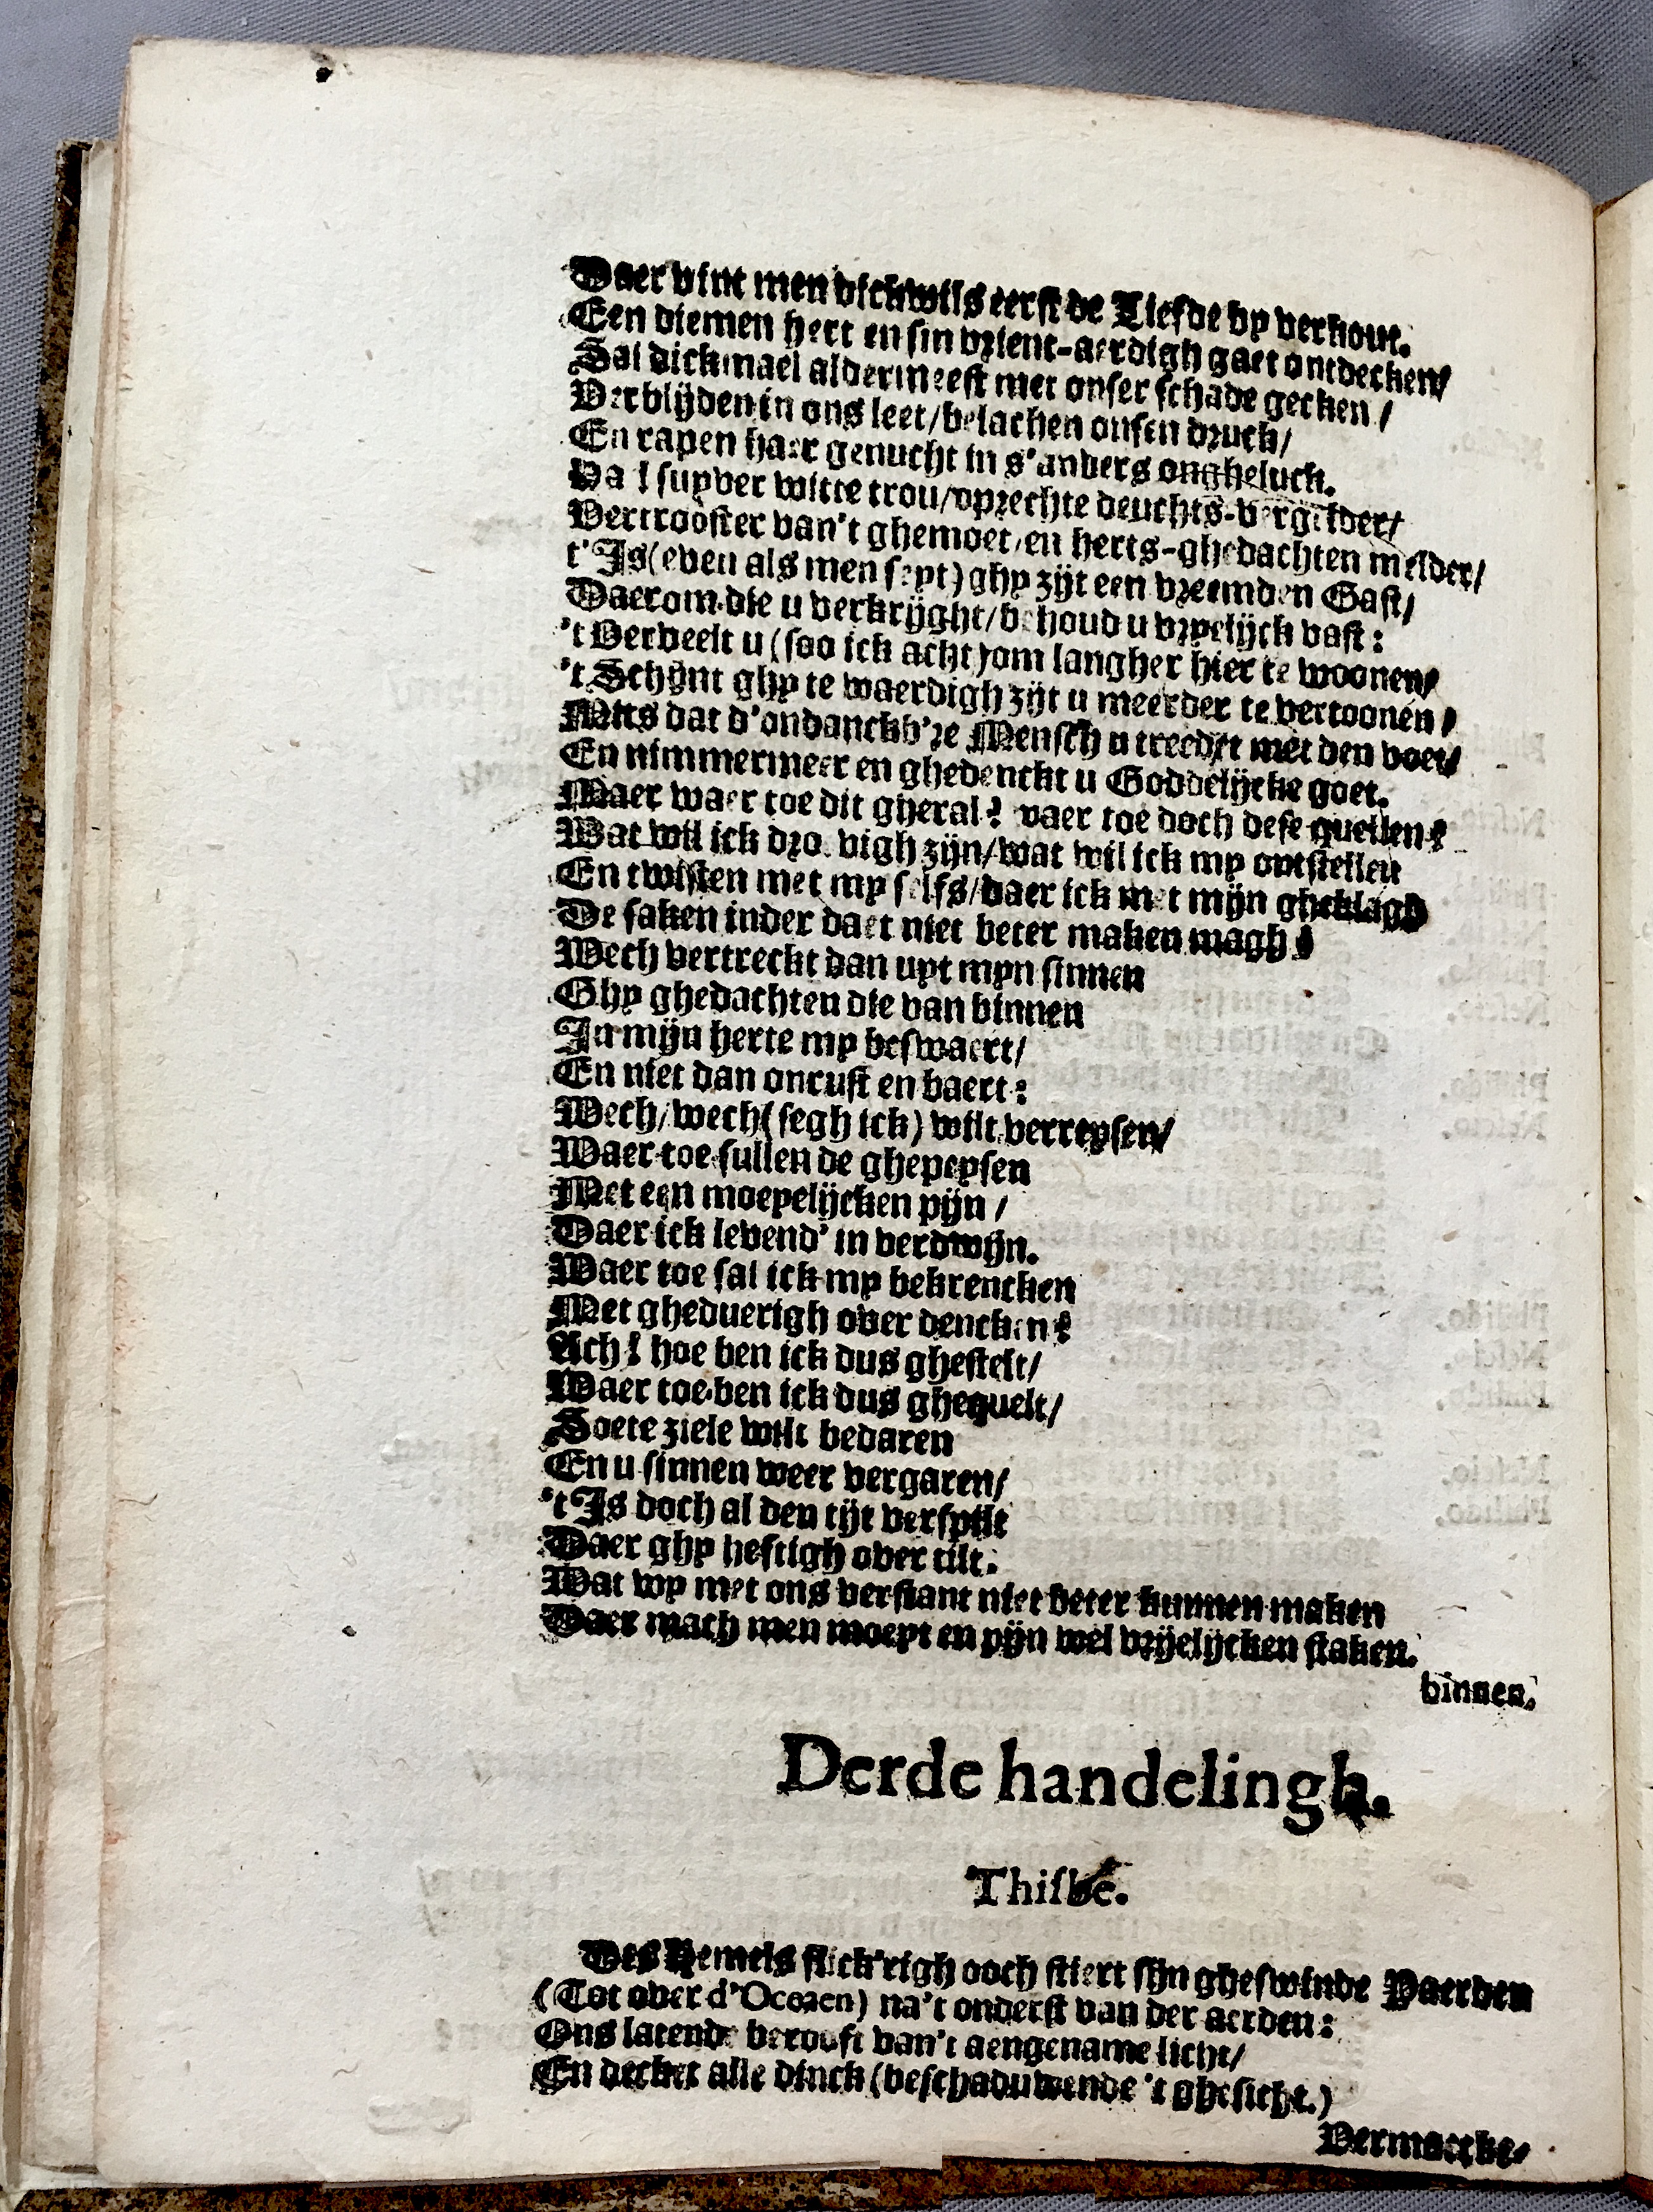 Daer vint men dickwils eerst de Liefde by verkout.
Een diemen hert en sin vrient-aerdigh gaet ontdecken/
Sal dickmael aldermeest met onser schade gecken/
Verblijden in ons leet/belachen onsen druck/
En rapen haer genucht in s'anders ongheluck.
Ha! suyver witte trou/oprechte deuchts-vergelder/
Vertrooster van't ghemoet/en herts-ghedachten melder/
t'Is (even als men seyt) ghy zijt een vreemden Gast/
Daerom die u verkrijght/behoud u vryelijck vast:
't Verveelt u (soo ick acht) om langher hier te woonen/
't Schijnt ghy te waerdigh zijt u meerder te vertoonen/
Mits dat d'ondanckb're Mensch u treedet met den voet/
En nimmermeer en ghedenckt u Goddelijcke goet.
Maer waer toe dit gheral? waer toe doch dese quellen?
Wat wil ick droevigh zijn/wat wil ick my ontstellen
En twisten met my selfs/daer ick met mijn gheklagh
De saken inder daet niet beter maken magh?
Wech vertreckt dan uyt myn sinnen
Ghy ghedachten die van binnen
In mijn herte my beswaert/
En niet dan onrust en baert:
Wech/wech (segh ick) wilt verreysen/
Waer toe sullen de ghepeysen
Met een moeyelijcken pijn/
Daer ick levend' in verdwijn.
Waer toe sal ick my bekrencken
Met gheduerigh over dencken?
Ach! hoe ben ick dus ghestelt/
Waer toe ben ick dus ghequelt/
Soete ziele wilt bedaren
En u sinnen weer vergaren/
't Is doch al den tijt verspilt
Daer ghy heftigh over tilt.
Wat wy met ons verstant niet beter kunnen maken
Daer mach men moeyt en pijn wel vrijelijcken staken.
binnen.
Derde handelingh.
Thisbe.
Des Hemels flick'righ ooch stiert sijn gheswinde Paerden
(Tot over d'Oceaen) na't onderst van der aerden:
Ons latende berooft van't aengename licht/
En decket alle dinck (beschaduwende 't ghesicht.)